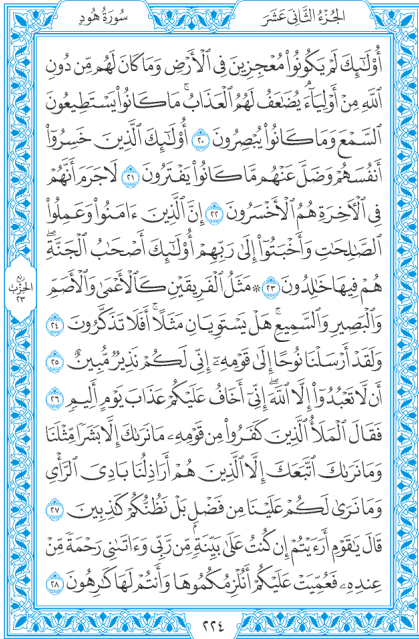 الجُزْءُ الثَّانِي عَشَرَ
سُورَةُ هُودٍ
أُوْلَٰٓئِكَ لَمۡ يَكُونُواْ مُعۡجِزِينَ فِي ٱلۡأَرۡضِ وَمَا كَانَ لَهُم مِّن دُونِ
ٱللَّهِ مِنۡ أَوۡلِيَآءَۘ يُضَٰعَفُ لَهُمُ ٱلۡعَذَابُۚ مَا كَانُواْ يَسۡتَطِيعُونَ
ٱلسَّمۡعَ وَمَا كَانُواْ يُبۡصِرُونَ ٢٠ أُوْلَٰٓئِكَ ٱلَّذِينَ خَسِرُوٓاْ
أَنفُسَهُمۡ وَضَلَّ عَنۡهُم مَّا كَانُواْ يَفۡتَرُونَ ٢١ لَا جَرَمَ أَنَّهُمۡ
فِي ٱلۡأٓخِرَةِ هُمُ ٱلۡأَخۡسَرُونَ ٢٢ إِنَّ ٱلَّذِينَ ءَامَنُواْ وَعَمِلُواْ
ٱلصَّٰلِحَٰتِ وَأَخۡبَتُوٓاْ إِلَىٰ رَبِّهِمۡ أُوْلَٰٓئِكَ أَصۡحَٰبُ ٱلۡجَنَّةِۖ
هُمۡ فِيهَا خَٰلِدُونَ ٢٣ ۞ مَثَلُ ٱلۡفَرِيقَيۡنِ كَٱلۡأَعۡمَىٰ وَٱلۡأَصَمِّ
وَٱلۡبَصِيرِ وَٱلسَّمِيعِۚ هَلۡ يَسۡتَوِيَانِ مَثَلًاۚ أَفَلَا تَذَكَّرُونَ ٢٤
وَلَقَدۡ أَرۡسَلۡنَا نُوحًا إِلَىٰ قَوۡمِهِۦٓ إِنِّي لَكُمۡ نَذِيرٞ مُّبِينٌ ٢٥
أَن لَّا تَعۡبُدُوٓاْ إِلَّا ٱللَّهَۖ إِنِّيٓ أَخَافُ عَلَيۡكُمۡ عَذَابَ يَوۡمٍ أَلِيمٖ ٢٦
فَقَالَ ٱلۡمَلَأُ ٱلَّذِينَ كَفَرُواْ مِن قَوۡمِهِۦ مَا نَرَىٰكَ إِلَّا بَشَرٗا مِّثۡلَنَا
وَمَا نَرَىٰكَ ٱتَّبَعَكَ إِلَّا ٱلَّذِينَ هُمۡ أَرَاذِلُنَا بَادِيَ ٱلرَّأۡيِ
وَمَا نَرَىٰ لَكُمۡ عَلَيۡنَا مِن فَضۡلِۭ بَلۡ نَظُنُّكُمۡ كَٰذِبِينَ ٢٧
قَالَ يَٰقَوۡمِ أَرَءَيۡتُمۡ إِن كُنتُ عَلَىٰ بَيِّنَةٖ مِّن رَّبِّي وَءَاتَىٰنِي رَحۡمَةٗ مِّنۡ
عِندِهِۦ فَعُمِّيَتۡ عَلَيۡكُمۡ أَنُلۡزِمُكُمُوهَا وَأَنتُمۡ لَهَا كَٰرِهُونَ ٢٨
ربع
الحزب
٢٣
٢٢٤